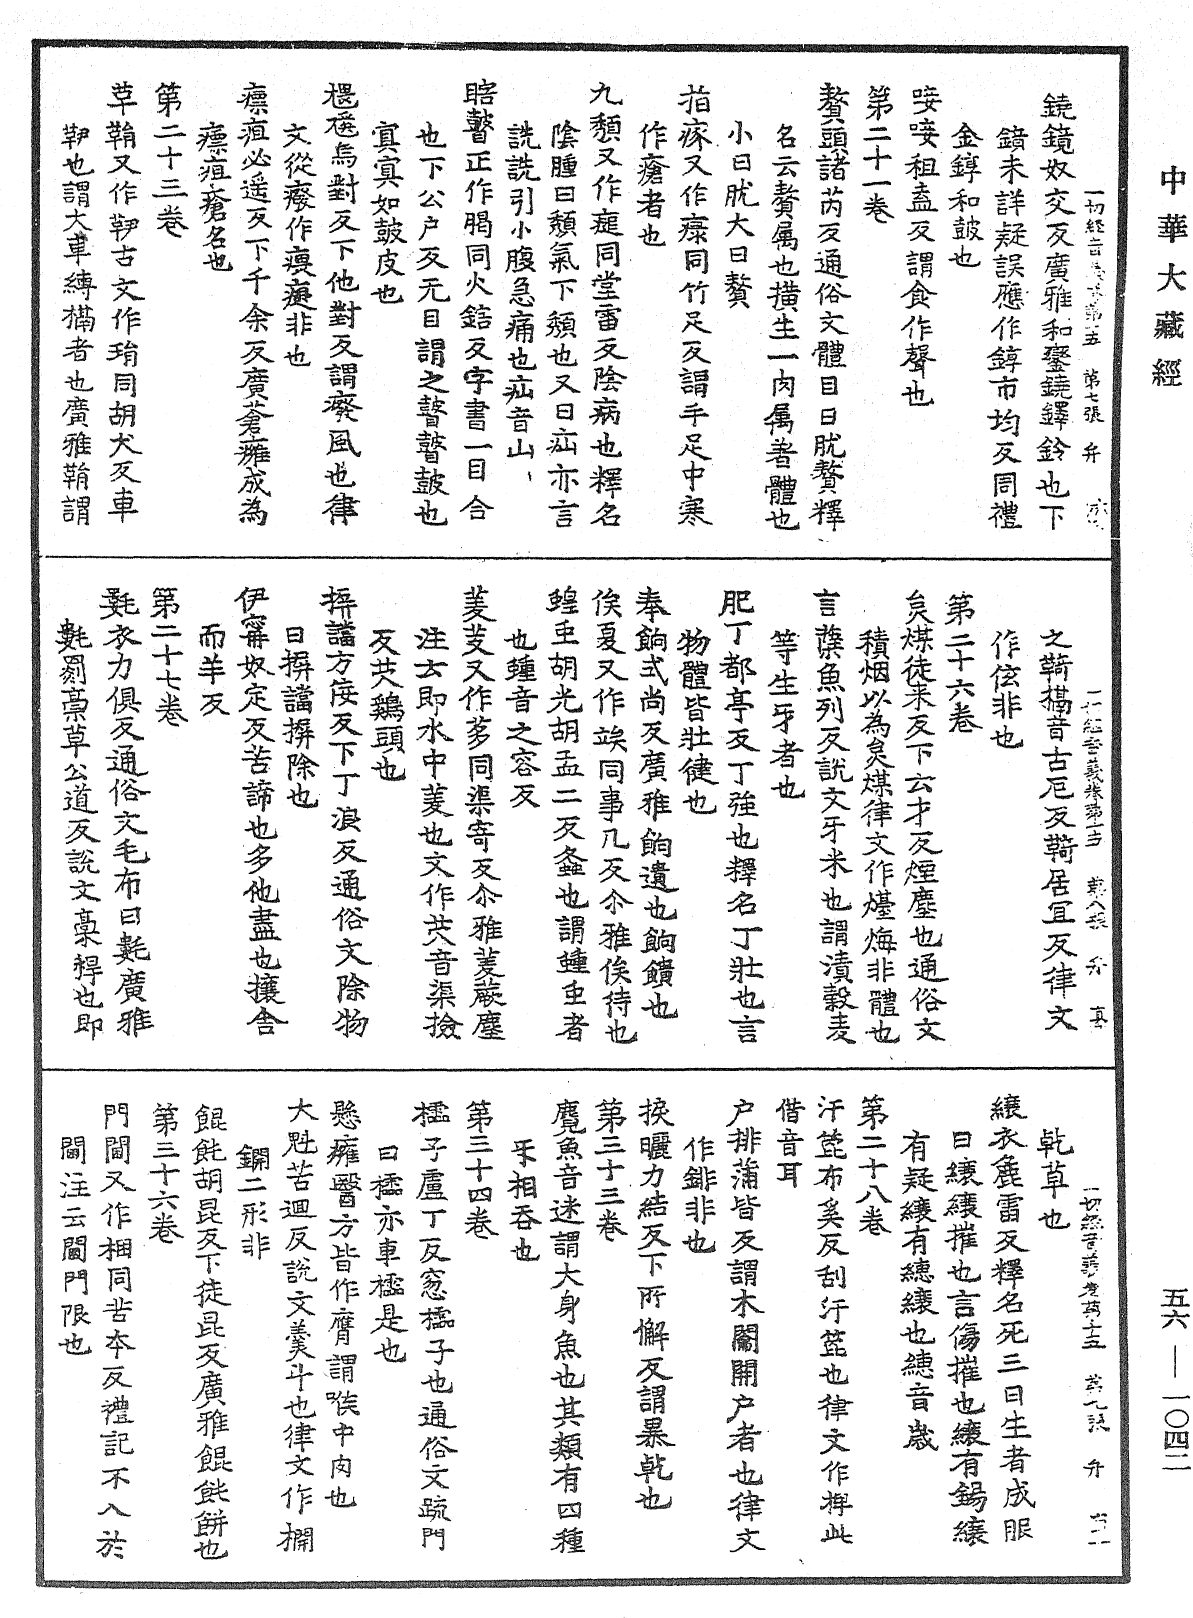 中華大藏經
一切經音義卷第十五 第七張 弁
鐃鏡奴交反廣雅和鑾鐃鐸鈴也下
鐼未詳疑誤應作錞市均反同禮
金錞和鼓也
唼唼祖盍反謂食作聲也
第二十一卷
贅頭諸芮反通俗文體目曰肬贅釋
名云贅属也撗生一肉属著體也
小曰肬大曰贅
拍瘃又作瘃同竹足反謂手足中寒
作瘡者也
九頹又作㿉同堂雷反陰病也釋名
陰腫曰頹氣下頹也又曰疝亦言
詵詵引小腹急痛也疝音山
瞎瞽正作䁋同火鎋反字書一目合
也下公户反无目謂之瞽瞽鼓也
寘寘如鼓皮也
㾯㾽烏對反下他對反謂癈風也律
文從癈作㾯㾽非也
瘭疽必遥反下千余反廣蒼癰成為
瘭疽瘡名也
第二十三卷
草鞙又作䩥古文作琄同胡犬反車
䩥也謂大車縛槅者也廣雅鞙謂
一切經音義卷第十五 第八張 弁
之䩭槅音古厄反䩭居宜反律文
作伭非也
第二十六卷
炱煤徒来反下云才反煙塵也通俗文
積烟以為炱煤律文作㙜䍙非體也
言蘖魚列反說文牙米也謂漬穀麦
等生牙者也
肥丁都亭反丁強也釋名丁壯也言
物體皆壯健也
奉餉式尚反廣雅餉遺也餉饋也
俟夏又作竢同事几反尒雅俟待也
蝗虫胡光胡孟二反螽也謂螽虫者
也螽音之容反
菱芰又作茤同渠寄反尒雅菱蕨䕲
注云即水中菱也文作芡音渠撿
反芡鷄頭也
摒擋方娙反下丁浪反通俗文除物
曰摒擋摒除也
伊甯奴定反苦諦也多他盡也攘舍
而羊反
第二十七卷
氀衣力俱反通俗文毛布曰氀廣雅
氀罽稾草公道反說文稾稈也即
一切經音義卷第十五 第九張 弁
乾草也
縗衣麁雷反釋名死三日生者成服
曰縗縗摧也言傷摧也縗有錫縗
有疑縗有繐縗也繐音歳
第二十八卷
汗箆布奚反刮汗箆也律文作椑此
借音耳
户排蒲皆反謂木闑開户者也律文
作䤵非也
捩曬力結反下所懈反謂暴乾也
第三十三卷
麑魚音迷謂大身魚也其類有四種
乐相吞也
第三十四卷
櫺子盧丁反窓櫺子也通俗文疏門
曰櫺亦車櫺是也
懸癰醫方皆作膺謂喉中肉也
大魁苦迴反說文羹斗也律文作榍
鐦二形非
餛飩胡昆反下徒昆反廣雅餛飩餅也
第三十六卷
門閫又作梱同苦本反禮記不入於
閫注云閫門限也
五六—一〇四二